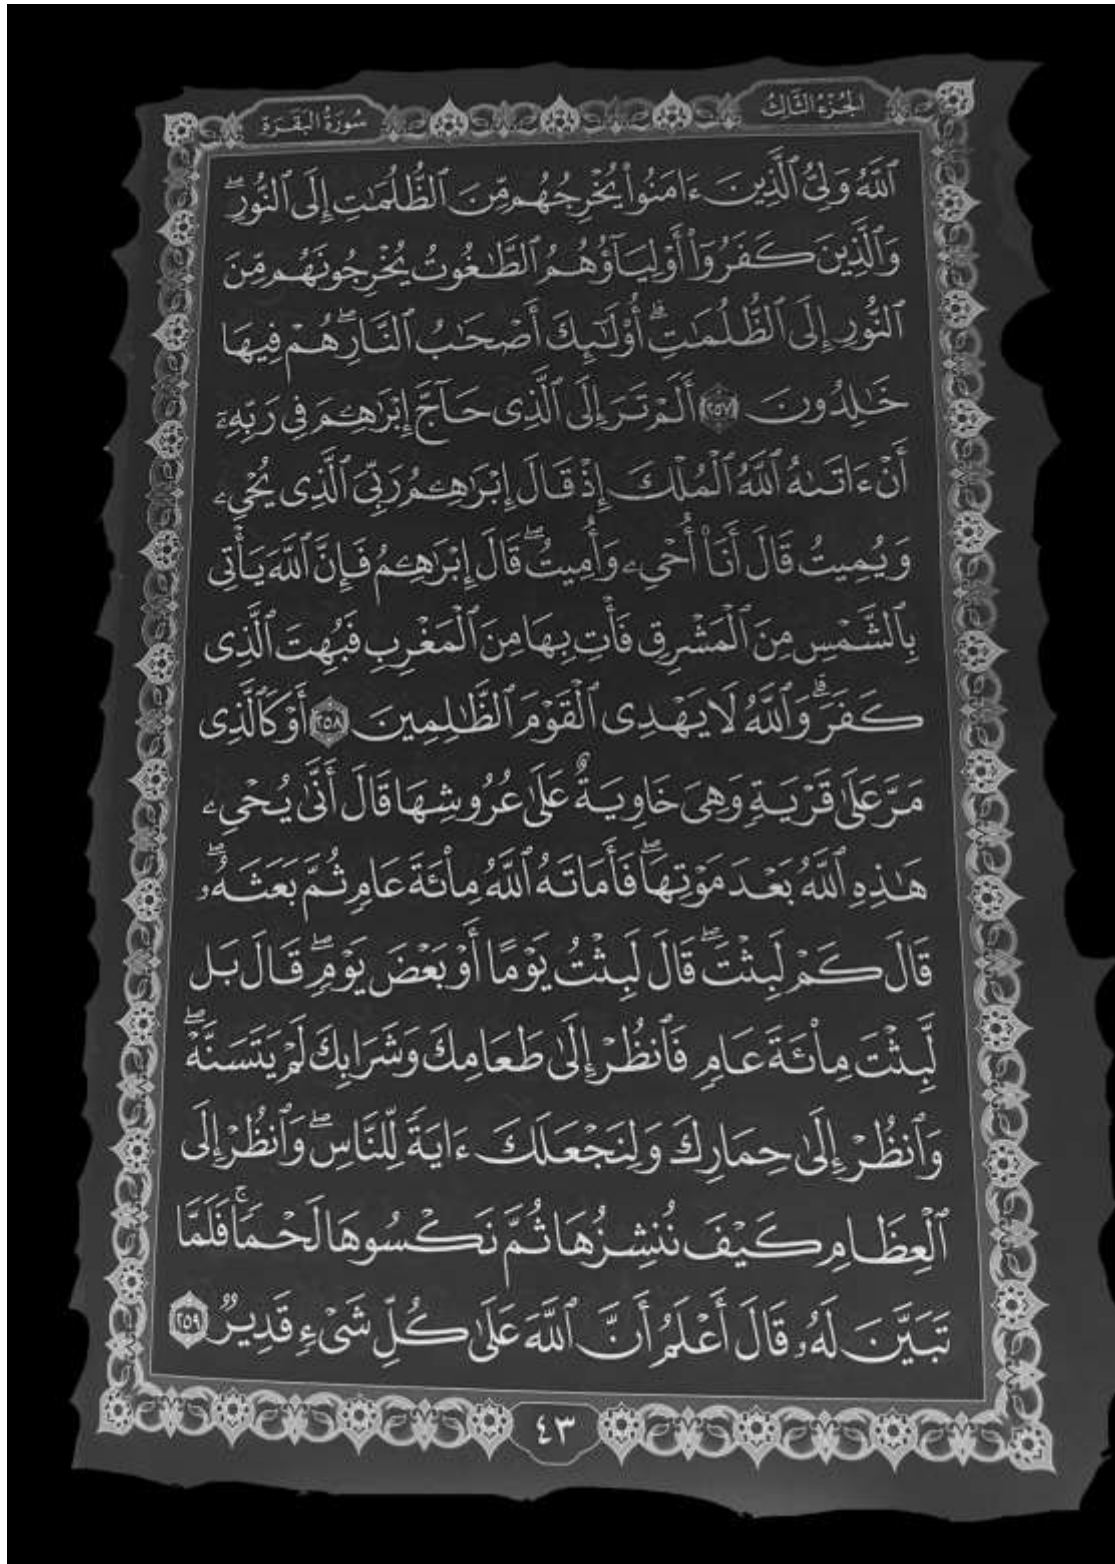 الجُزْءُ الثَّالِثُ
سُورَةُ البَقَرَةِ
ٱللَّهُ وَلِىُّ ٱلَّذِينَ ءَامَنُوا۟ يُخْرِجُهُم مِّنَ ٱلظُّلُمَـٰتِ إِلَى ٱلنُّورِ ۖ
وَٱلَّذِينَ كَفَرُوٓا۟ أَوْلِيَآؤُهُمُ ٱلطَّـٰغُوتُ يُخْرِجُونَهُم مِّنَ
ٱلنُّورِ إِلَى ٱلظُّلُمَـٰتِ ۗ أُو۟لَـٰٓئِكَ أَصْحَـٰبُ ٱلنَّارِ ۖ هُمْ فِيهَا
خَـٰلِدُونَ ٢٥٧ أَلَمْ تَرَ إِلَى ٱلَّذِى حَآجَّ إِبْرَٰهِـۧمَ فِى رَبِّهِۦٓ
أَنْ ءَاتَىٰهُ ٱللَّهُ ٱلْمُلْكَ إِذْ قَالَ إِبْرَٰهِـۧمُ رَبِّىَ ٱلَّذِى يُحْىِۦ
وَيُمِيتُ قَالَ أَنَا۠ أُحْىِۦ وَأُمِيتُ ۖ قَالَ إِبْرَٰهِـۧمُ فَإِنَّ ٱللَّهَ يَأْتِى
بِٱلشَّمْسِ مِنَ ٱلْمَشْرِقِ فَأْتِ بِهَا مِنَ ٱلْمَغْرِبِ فَبُهِتَ ٱلَّذِى
كَفَرَ ۗ وَٱللَّهُ لَا يَهْدِى ٱلْقَوْمَ ٱلظَّـٰلِمِينَ ٢٥٨ أَوْ كَٱلَّذِى
مَرَّ عَلَىٰ قَرْيَةٍ وَهِىَ خَاوِيَةٌ عَلَىٰ عُرُوشِهَا قَالَ أَنَّىٰ يُحْىِۦ
هَـٰذِهِ ٱللَّهُ بَعْدَ مَوْتِهَا ۖ فَأَمَاتَهُ ٱللَّهُ مِا۟ئَةَ عَامٍ ثُمَّ بَعَثَهُۥ ۖ
قَالَ كَمْ لَبِثْتَ ۖ قَالَ لَبِثْتُ يَوْمًا أَوْ بَعْضَ يَوْمٍ ۖ قَالَ بَل
لَّبِثْتَ مِا۟ئَةَ عَامٍ فَٱنظُرْ إِلَىٰ طَعَامِكَ وَشَرَابِكَ لَمْ يَتَسَنَّهْ ۖ
وَٱنظُرْ إِلَىٰ حِمَارِكَ وَلِنَجْعَلَكَ ءَايَةً لِّلنَّاسِ ۖ وَٱنظُرْ إِلَى
ٱلْعِظَامِ كَيْفَ نُنشِزُهَا ثُمَّ نَكْسُوهَا لَحْمًا ۚ فَلَمَّا
تَبَيَّنَ لَهُۥ قَالَ أَعْلَمُ أَنَّ ٱللَّهَ عَلَىٰ كُلِّ شَىْءٍ قَدِيرٌ ٢٥٩
٤٣